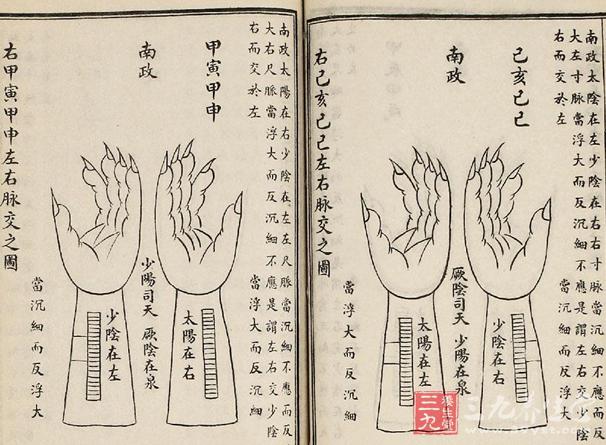 南政太陽在左少陰在右右寸脈當沉細不應而反
大左寸脈當浮大而反沉細不應是謂左右交少陰
右而交於左
己亥己巳
南政
少陰在右
當浮大而反沉細
厥陰司天 少陽在泉
太陽在左
當沉細而反浮大
右己亥己巳左右脈交之圖
南政太陽在右少陰在左左尺脈當沉細不應而反
大右尺脈當浮大而反沉細不應是謂左右交少陰
右而交於左
甲寅甲申
南政
太陽在右
當浮大而反沉細
少陽司天 厥陰在泉
少陰在左
當沉細而反浮大
右甲寅甲申左右脈交之圖
三九養生堂
三九养生堂